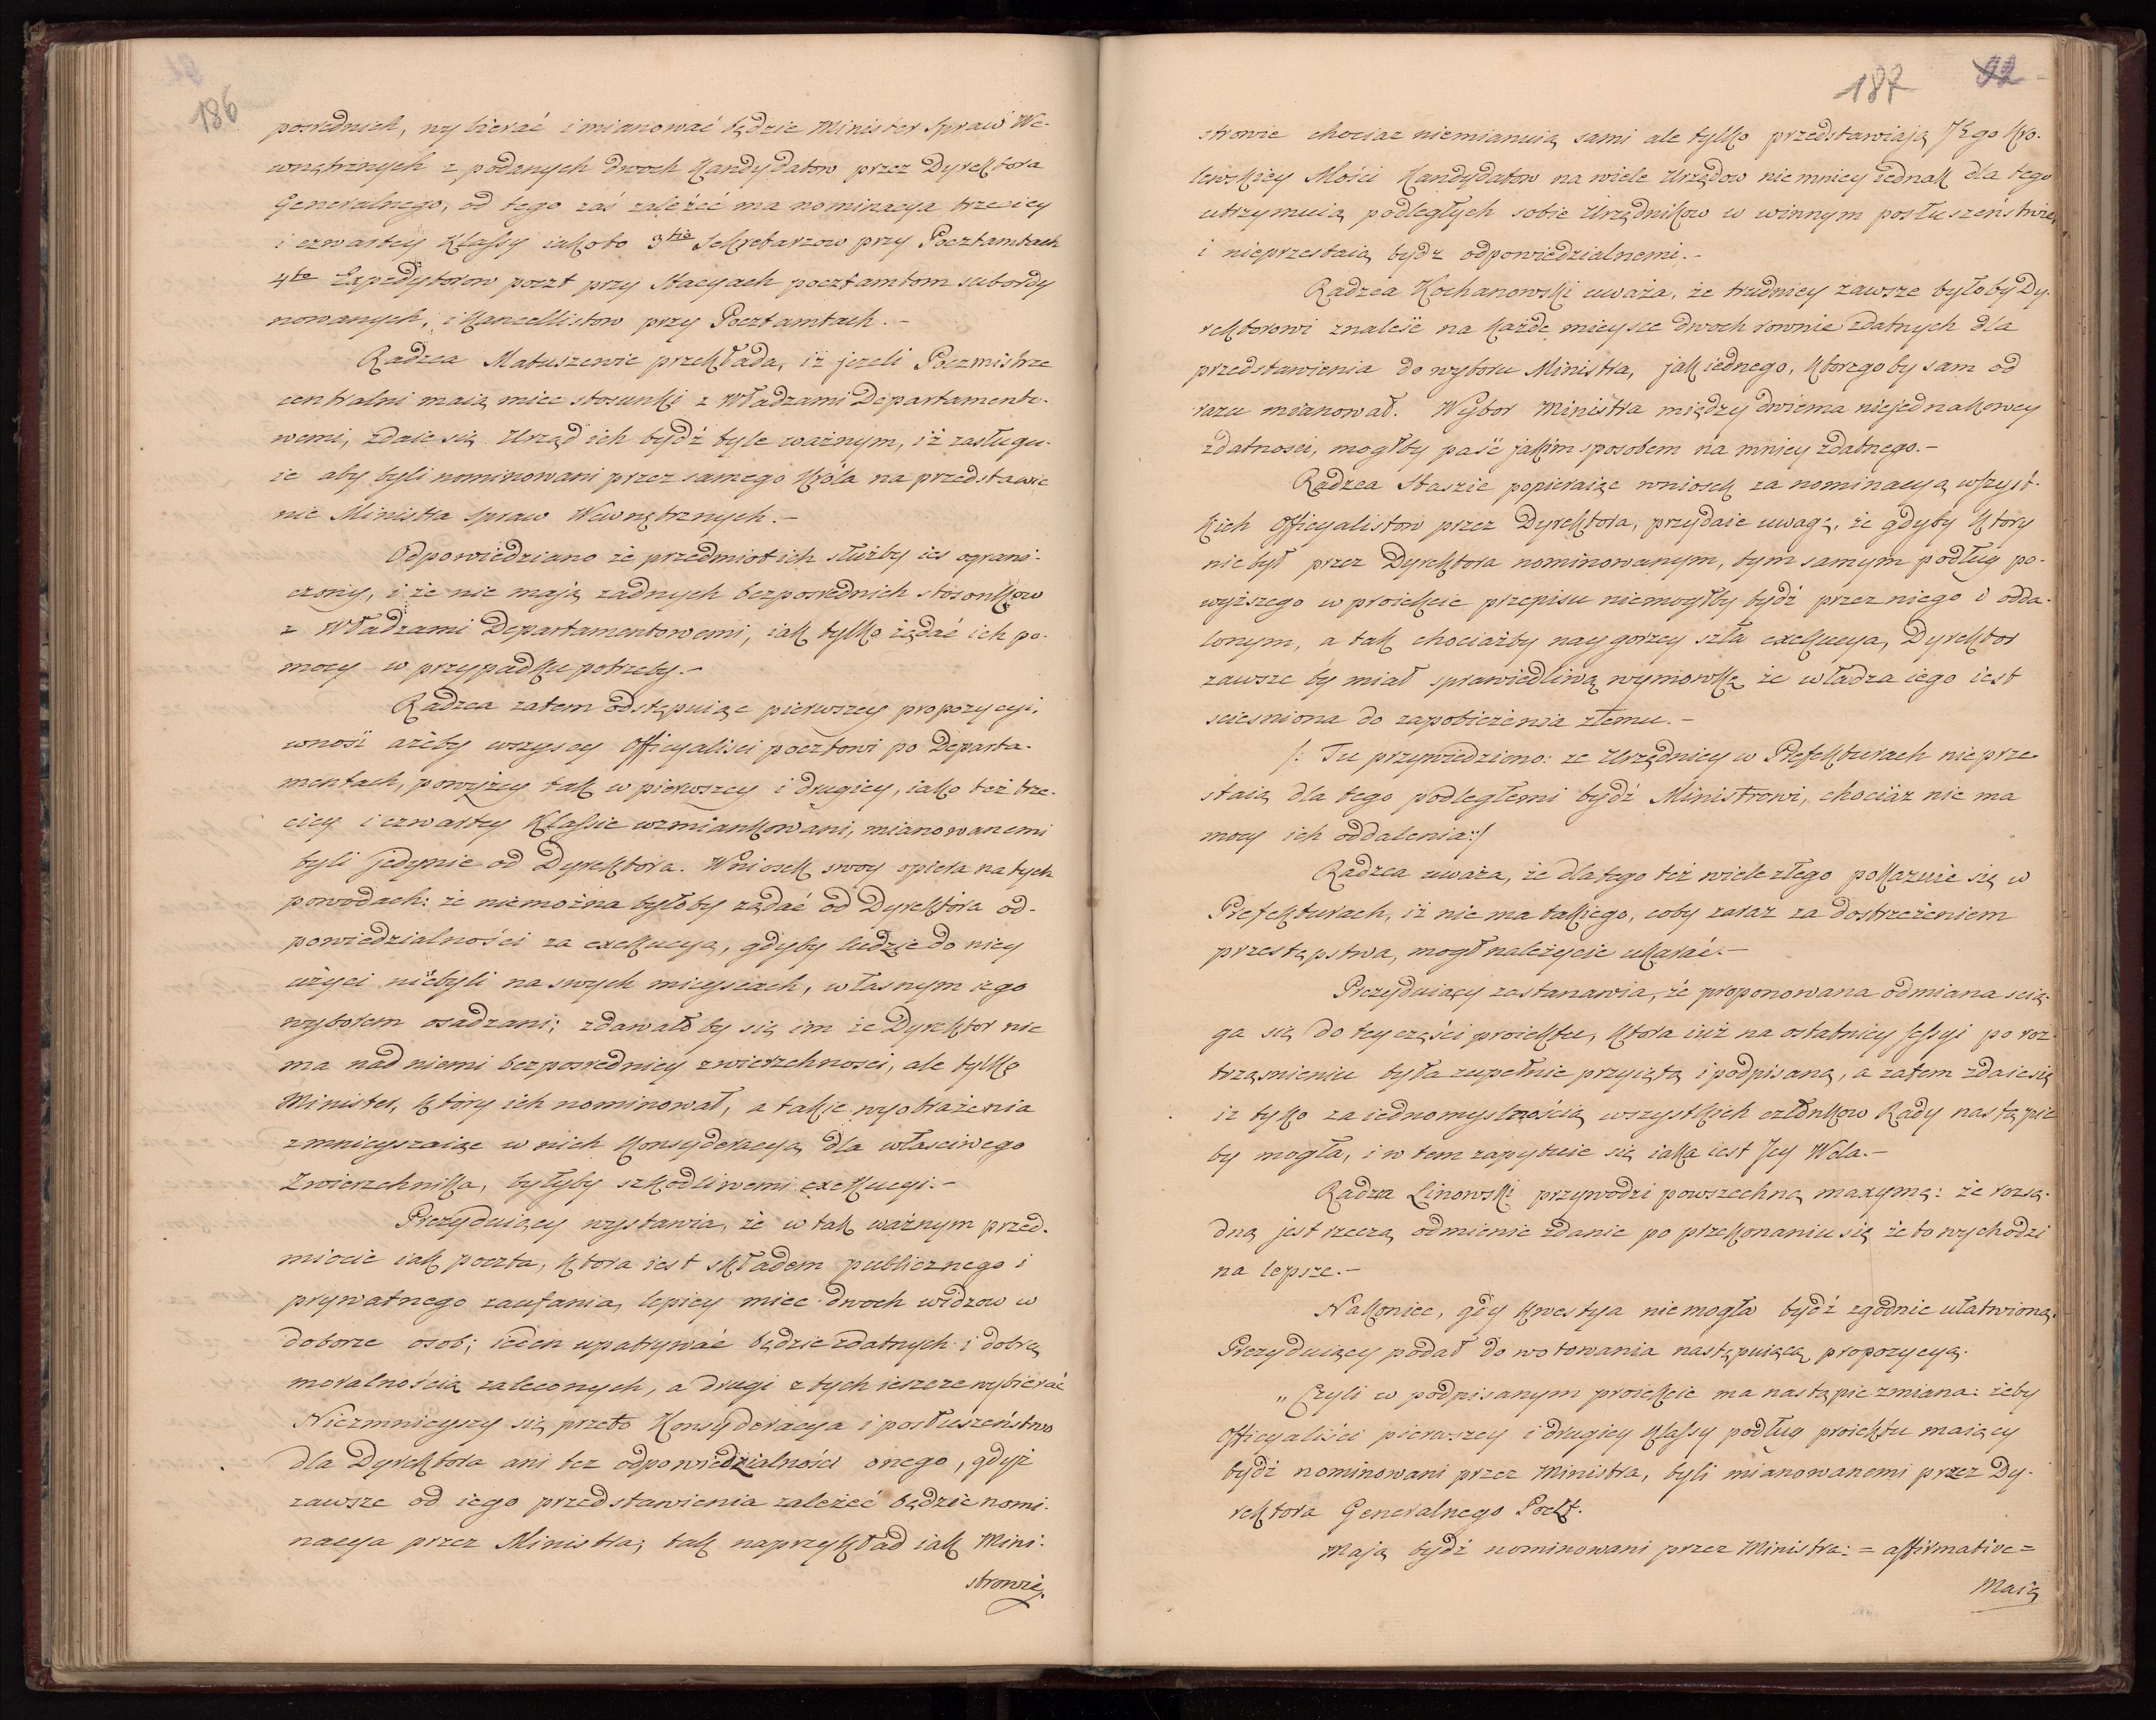 186
posrednich, wybierać i mianować będzie Minister Spraw We-
wnętrznych z podanych dwoch Kandydatow przez Dyrektora
Generalnego, od tego zaś zależéć ma nominacya trzeciey
i czwartey Klassy iakoto 3tio Sekretarzow przy Pocztamtach
4to Expedytorow poczt przy Stacyach pocztamtom subordy
nowanych, i Kancellistow przy Pocztamtach.-
Radzca Matuszewic przekłada, iż jezeli Poczmistrze
centralni maią miec stosunki z Władzami Departamento-
wemi, zdaie się Urząd ich bydź tyle ważnym, iż zasługu-
ie aby byli nominowani przez samego Króla na przedstawie
nie Ministra Spraw Wewnętrznych.-
Odpowiedziano że przedmiot ich służby ies ograni-
czony, i że nie mają zadnych bezposrednich stosonkow
z Władzami Departamentowemi, iak tylko żądać ich po-
mocy w przypadku potrzeby.-
Radzca zatem odstępuiąc pierwszey propozycyi,
wnosi ażeby wszyscy Officyalisci pocztowi po Departa-
mentach, powyżey tak w pierwszey i drugiey, iako też trze-
ciey i czwartey Klassie wzmiankowani, mianowanemi
byli jedynie od Dyrektora. Wniosek swoy opiera na tych
powodach: że niemożna byłoby ządać od Dyrektora od-
powiedzialności za exekucyą, gdyby ludzie do niey
użyci niebyli na swych mieyscach, własnym iego
wyborem osadzani; zdawałoby się im że Dyrektor nie
ma nad niemi bezposredniey zwierzchnosci, ale tylko
Minister, który ich nominował, a takie wyobrażenia
zmnieyszaiąc w nich Konsyderacyą dla własciwego
Zwierzchnika, byłyby szkodliwemi exekucyi.-
Prezyduiący wystawia, że w tak ważnym przed-
miocie iak poczta, ktora iest składem publicznego i
prywatnego zaufania, lepiey miec dwoch widzow w
doborze osob; ieden upatrywać będzie zdatnych i dobrą
moralnością zaleconych, a drugi z tych ieszcze wybierać
Niezmnieyszy się przeto Konsyderacya i posłuszeństwo
dla Dyrektora ani tez odpowiedzialności onego, gdyż
zawsze od iego przedstawienia zależeć będzie nomi-
nacya przez Ministra; tak naprzykład iak Mini-
strowie,
187 92
strowie chociaz niemianuią sami ale tylko przedstawiają JKgo Kro-
lewskiey Mości Kandydatow na wiele Urzędow nie mniey iednak dla tego
utrzymuią podległych sobie Urzędnikow w winnym posłuszeństwie,
i nieprzestaią bydz odpowiedzialnemi.-
Radzca Kochanowski uważa, że trudniey zawsze byłoby Dy-
rektorowi znaleść na każde mieysce dwoch rownie zdatnych dla
przedstawienia do wyboru Ministra, jak iednego, ktoregoby sam od
razu mianował. Wybor Ministra między dwiema niejednakowey
zdatnosci, mogłby paść jakim sposobem na mniey zdatnego.-
Radzca Staszic popieraiąc wniosek za nominacyą wszyst-
kich Officyalistow przez Dyrektora, przydaie uwagę, że gdyby ktory
nie był przez Dyrektora nominowanym, tym samym podług po-
wyższego w proiekcie przepisu niemogłby bydź przez niego i odda-
lonym, a tak chociażby naygorzey szła exekucya, Dyrektor
zawsze by miał sprawiedliwą wymowkę że władza iego iest
scieśniona do zapobieżenia złemu.-
/: Tu przywiedziono: ze Urzędnicy w Prefekturach nieprze
staią dla tego podległemi bydź Ministrowi, chociaz nie ma
mocy ich oddalenia:/
Radzca uważa, że dlatego też wiele złego pokazuie się w
Prefekturach, iż nie ma takiego, coby zaraz za dostrzeżeniem
przestępstwa, mogł należycie ukarać.-
Prezyduiący zastanawia, że proponowana odmiana scią-
ga się do tey części proiektu, ktora iuż na ostatniey Sessyi po roz-
trząsnieniu była zupełnie przyiętą i podpisaną, a zatem zdaie się
iz tylko za iednomyslnością wszystkich członkow Rady nastąpić
by mogła, i w tem zapytuie się iaka iest Jey Wola.-
Radza Linowski przywodzi powszechną maxymę: że rozsą-
dną jest rzeczą odmienic zdanie po przekonaniu się że to wychodzi
na lepsze.-
Nakoniec, gdy kwestya niemogła bydź zgodnie ułatwioną,
Prezyduiący podał do wotowania następuiącą propozycyą.
„Czyli w podpisanym proiekcie ma nastąpic zmiana: żeby
Officyaliści pierwszey i drugiey Klassy podług proiektu maiący
bydź nominowani przez Ministra, byli mianowanemi przez Dy-
rektora Generalnego Poczt.
Mają bydź nominowani przez Ministra: = affirmative =
Maią